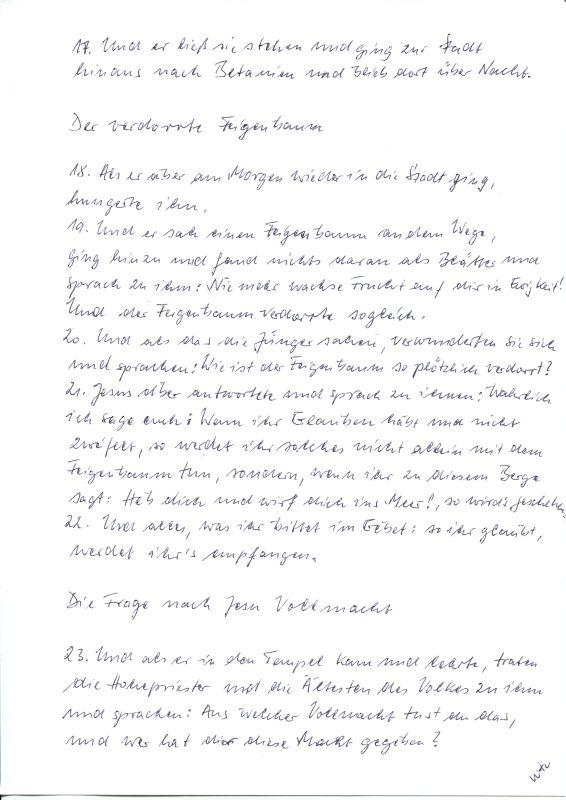 17. Und er ließ sie stehen und ging zur Stadt
hinaus nach Betanien und blieb dort über Nacht.
Der verdorrte Feigenbaum
18. Als er aber am Morgen wieder in die Stadt ging,
hungerte ihn.
19. Und er sah einen Feigenbaum an dem Wege,
ging hinzu und fand nichts daran als Blätter und
sprach zu ihm: Nie mehr wachse Frucht auf dir in Ewigkeit!
Und der Feigenbaum verdorrte sogleich.
20. Und als das die Jünger sahen, verwunderten sie sich
und sprachen: Wie ist der Feigenbaum so plötzlich verdorrt?
21. Jesus aber antwortete und sprach zu ihnen: Wahrlich
ich sage euch: Wenn ihr Glauben habt und nicht
zweifelt, so werdet ihr solches nicht allein mit dem
Feigenbaum tun, sondern, wenn ihr zu diesem Berge
sagt: Heb dich und wirf dich ins Meer!, so wird's geschehen.
22. Und alles, was ihr bittet im Gebet: so ihr glaubt,
werdet ihr's empfangen.
Die Frage nach Jesu Vollmacht
23. Und als er in den Tempel kam und lehrte, traten
die Hohepriester und die Ältesten des Volkes zu ihm
und sprachen: Aus welcher Vollmacht tust du das,
und wer hat dir diese Macht gegeben?